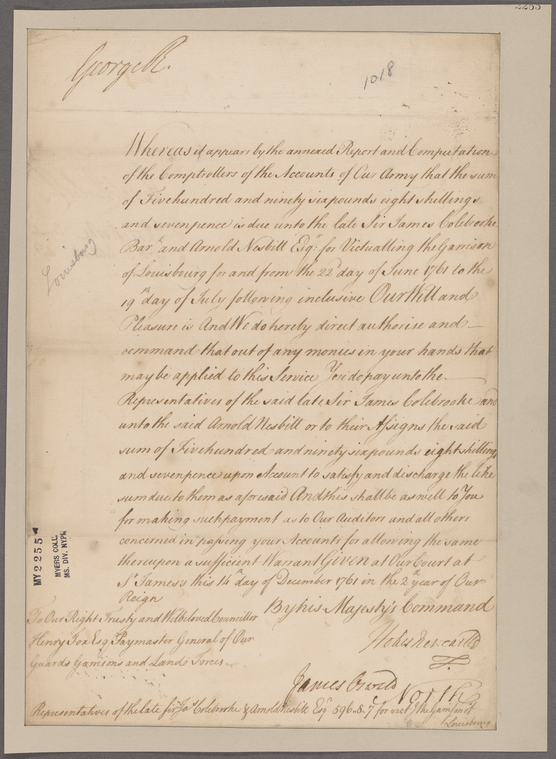 2255
George R.
1018
Whereas it appears by the annexed Report and Computation
of the Comptrollers of the Accounts of Our Army that the sum
of Five hundred and ninety six pounds eight shillings
and seven pence is due unto the late Sir James Colebrooke
Bar.t and Arnold Nesbitt Esq.r for Victualling the Garrison
of Louisbourg for and from the 22.d day of June 1761 to the
19.th day of July following inclusive Our Will and
Pleasure is And We do hereby direct authorise and
command that out of any monies in your hands that
may be applied to this Service You do pay unto the
Representatives of the said late Sir James Colebrooke and
unto the said Arnold Nesbitt or to their Assigns the said
sum of Five hundred and ninety six pounds eight shillings
and seven pence upon Account to satisfy and discharge the like
sum due to them as aforesaid And this shall be as well to You
for making such payment as to Our Auditors and all others
concerned in passing your Accounts for allowing the same
thereupon a sufficient Warrant Given at Our Court at
S.t James's this 14.th day of December 1761 in the 2 year of Our
Reign
By his Majesty's Command
Holles Newcastle
James Oswald
North
To Our Right Trusty and Welbeloved Councillor
Henry Fox Esq.r Paymaster General of Our
Guards Garrisons and Land Forces
Representatives of the late Sir Ja.s Colebrooke & Arnold Nesbitt Esq.r 596.8.7 for vict.g the Garrison of
Louisbourg
Louisbourg
MY 2255
MYERS COLL.
MS. DIV. NYPL